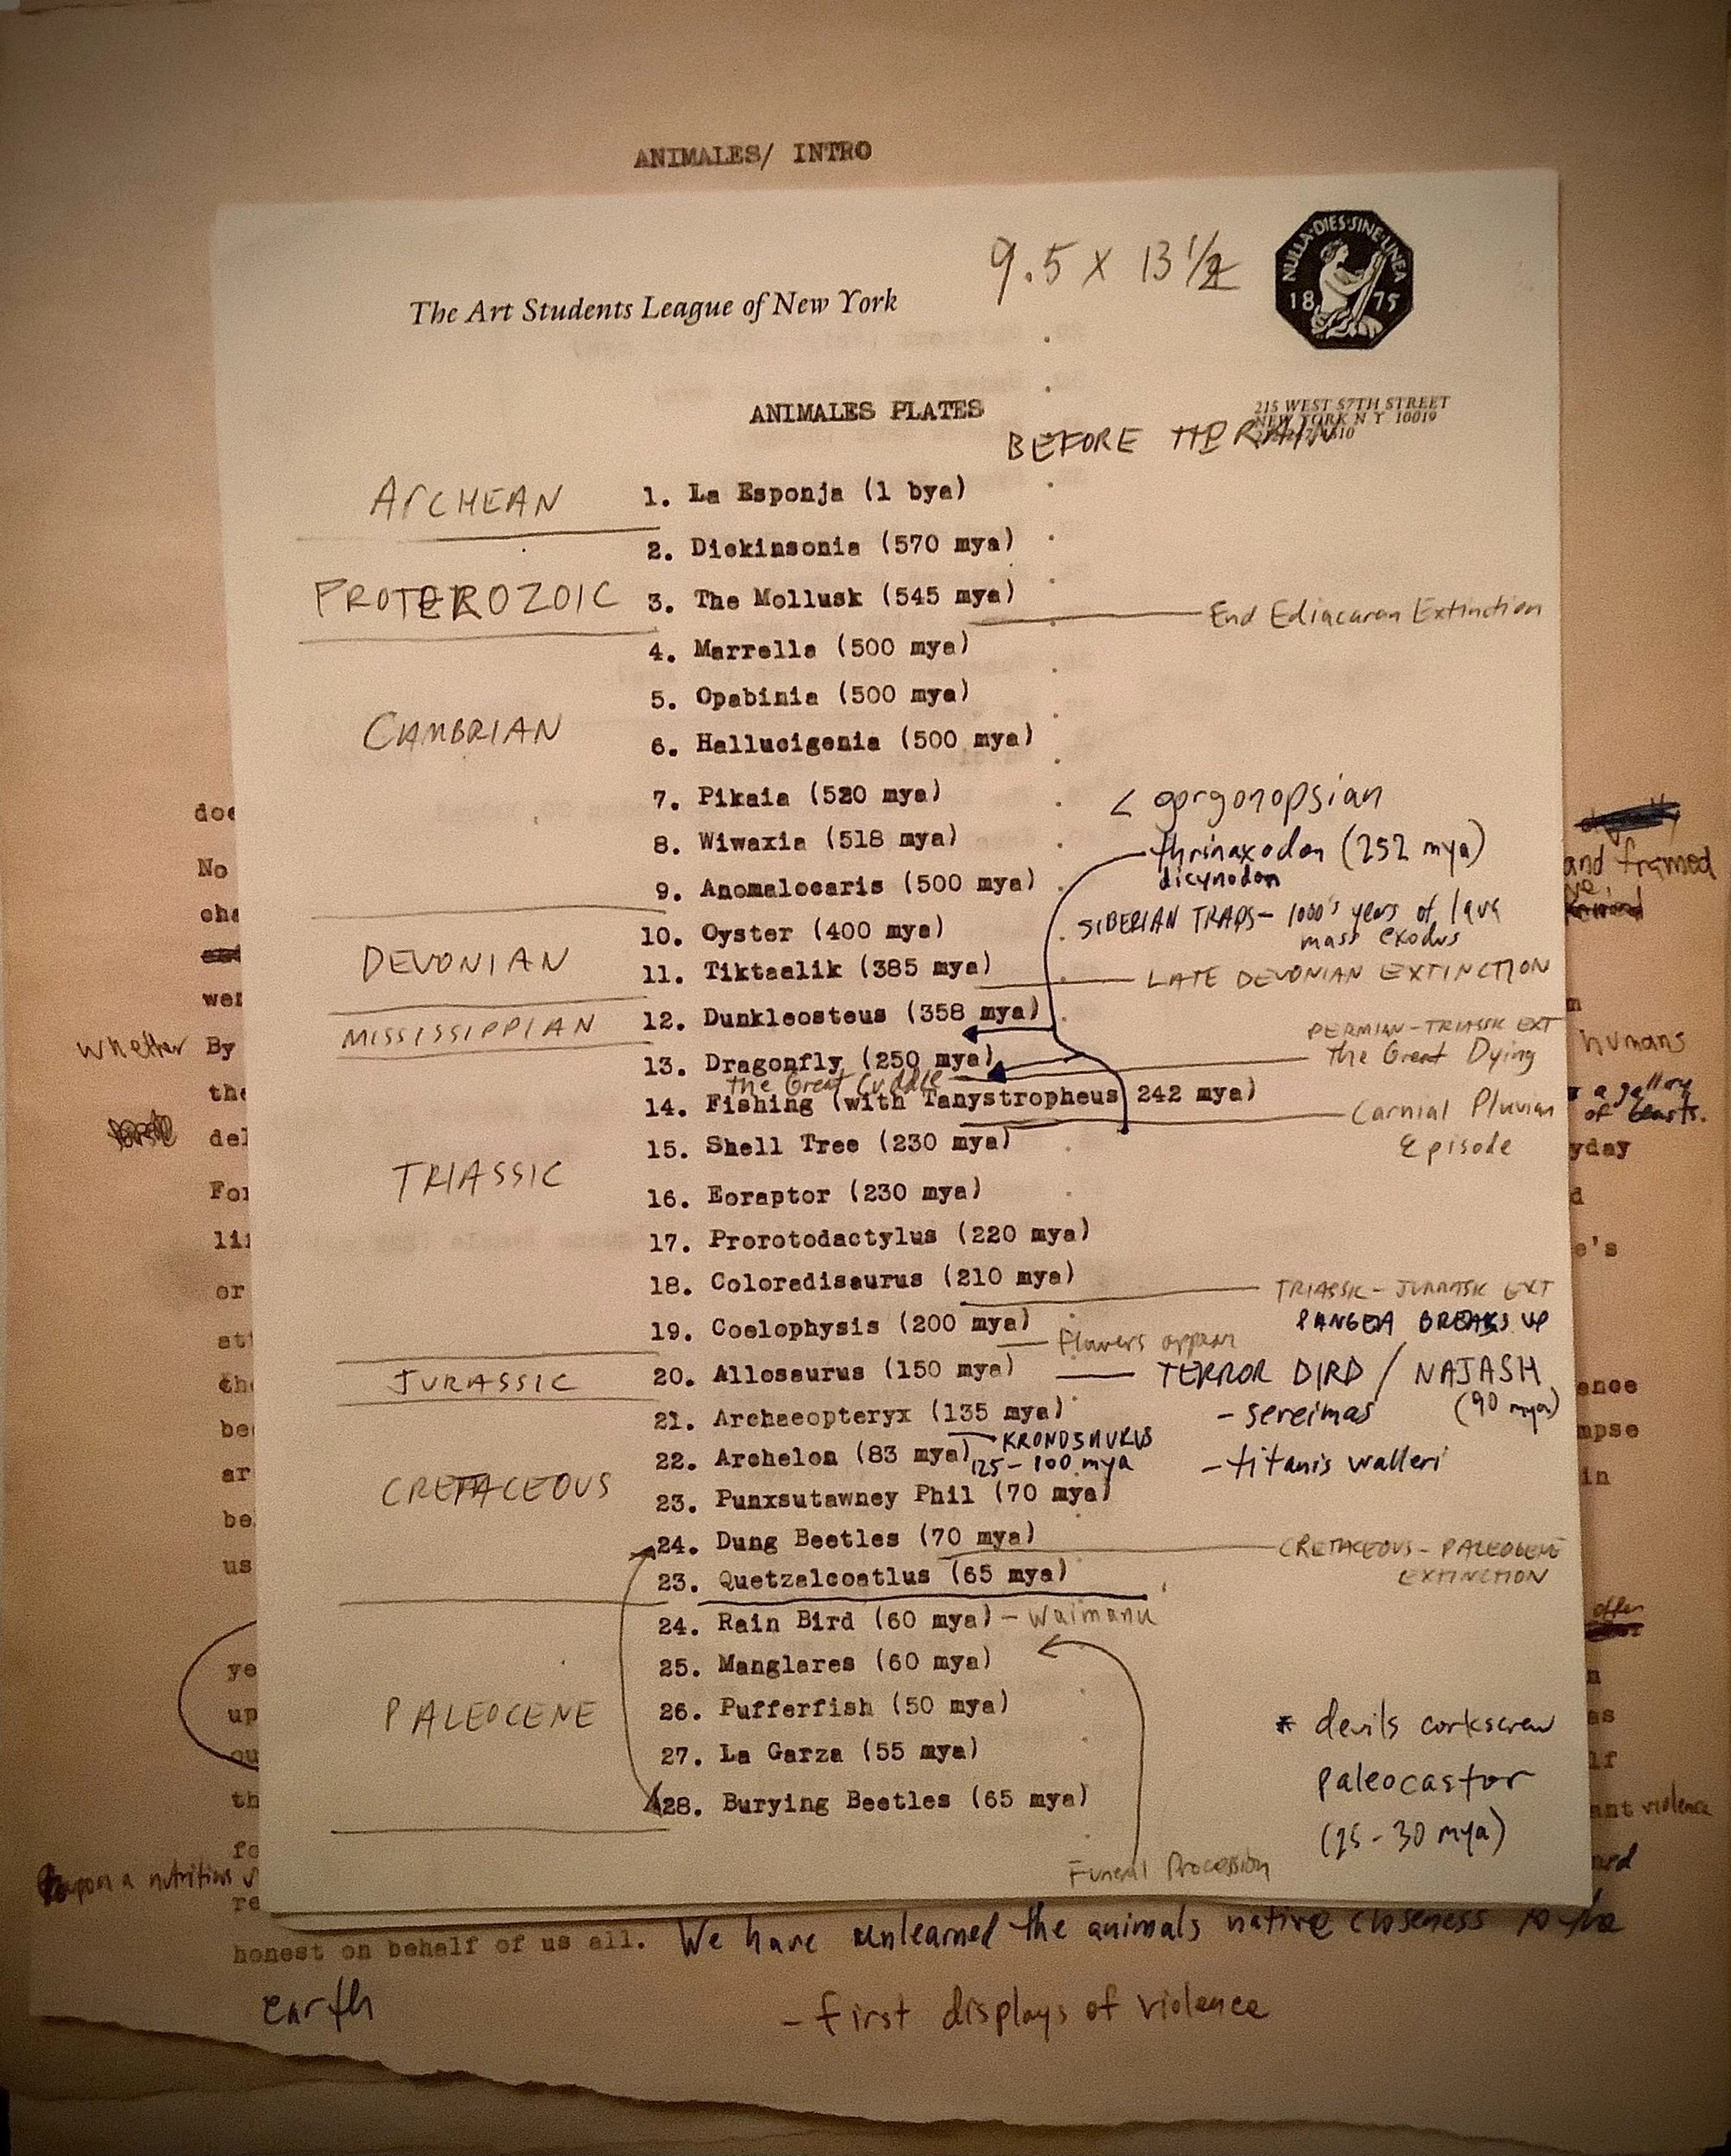 ANIMALES/ INTRO
9.5 x 13 1/2
NULLA·DIES·SINE·LINEA
1875
The Art Students League of New York
215 WEST 57TH STREET
NEW YORK N Y 10019
ANIMALES PLATES
BEFORE THE RAIN
ARCHEAN
1. La Esponja (1 bya)
2. Dickinsonia (570 mya)
PROTEROZOIC
3. The Mollusk (545 mya)
End Ediacaran Extinction
4. Marrella (500 mya)
5. Opabinia (500 mya)
CAMBRIAN
6. Hallucigenia (500 mya)
7. Pikaia (520 mya)
< gorgonopsian
8. Wiwaxia (518 mya)
thrinaxodon (252 mya)
dicynodon
9. Anomalocaris (500 mya)
SIBERIAN TRAPS - 1000's years of lava
mass exodus
10. Oyster (400 mya)
DEVONIAN
11. Tiktaalik (385 mya)
LATE DEVONIAN EXTINCTION
MISSISSIPPIAN
12. Dunkleosteus (358 mya)
PERMIAN-TRIASSIC EXT
the Great Dying
13. Dragonfly (250 mya)
the Great Cuddle
14. Fishing (with Tanystropheus 242 mya)
Carnial Pluvian
Episode
15. Shell Tree (230 mya)
TRIASSIC
16. Eoraptor (230 mya)
17. Prorotodactylus (220 mya)
18. Coloradisaurus (210 mya)
TRIASSIC-JURASSIC EXT
PANGEA BREAKS UP
19. Coelophysis (200 mya)
flowers appear
JURASSIC
20. Allosaurus (150 mya)
TERROR BIRD / NAJASH
(90 mya)
- sereimas
21. Archaeopteryx (135 mya)
KRONOSAURUS
125-100 mya
- titanis walleri
22. Archelon (83 mya)
CRETACEOUS
23. Punxsutawney Phil (70 mya)
24. Dung Beetles (70 mya)
CRETACEOUS-PALEOGENE
EXTINCTION
23. Quetzalcoatlus (65 mya)
24. Rain Bird (60 mya) - Waimanu
25. Manglares (60 mya)
PALEOCENE
26. Pufferfish (50 mya)
27. La Garza (55 mya)
28. Burying Beetles (65 mya)
* devils corkscrew
paleocastor
(25-30 mya)
Funeral Procession
No
and framed
whether By
humans
a gallery
of beasts.
or
offer
us
violence
upon a nutritious
honest on behalf of us all. We have unlearned the animals native closeness to the
earth
- first displays of violence